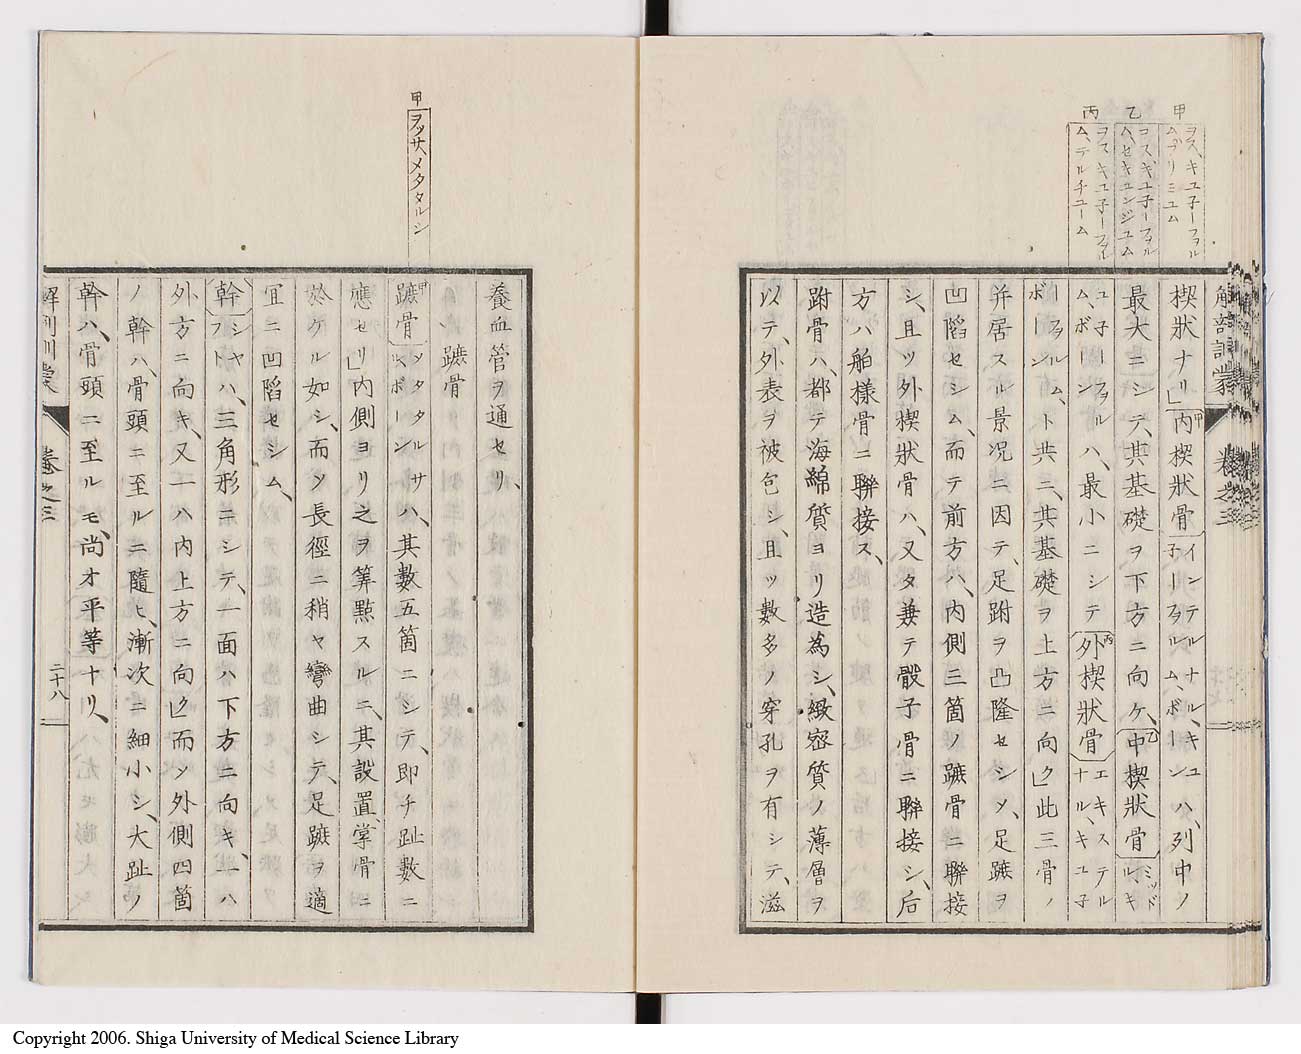 甲
ヲス、キユ子ーフヲル
ム、プリミユム
乙
ヲス、キユ子ーフヲル
ム、セキユンジユム
丙
ヲス、キユ子ーフヲル
ム、テルチユーム
解剖訓蒙 卷之三
楔狀ナリ」內楔狀骨インテルナル、キユ
子ーフヲルム、ボーンハ、列中ノ
最大ニシテ、其基礎ヲ下方ニ向ケ、中楔狀骨ミッドル、キ
ユ子ーフヲル
ム、ボーンハ、最小ニシテ外楔狀骨エキステル
ナル、キユ子
ーフヲルム、
ボーント共ニ、其基礎ヲ上方ニ向ク」此三骨ノ
并居スル景況ニ因テ、足跗ヲ凸隆セシメ、足蹠ヲ
凹陷セシム、而テ前方ハ、內側三箇ノ蹠骨ニ聯接
シ、且ツ外楔狀骨ハ、又タ兼テ骰子骨ニ聯接シ、后
方ハ舶樣骨ニ聯接ス、
跗骨ハ、都テ海綿質ヨリ造爲シ、緻密質ノ薄層ヲ
以テ、外表ヲ被包シ、且ツ數多ノ穿孔ヲ有シテ、滋
甲
ヲッサ、メタタルシ
養血管ヲ通セリ、
蹠骨
蹠骨メタタルサ
ル、ボーンハ、其數五箇ニシテ、即チ趾數ニ
應セリ」內側ヨリ之ヲ筭㸃スルニ、其設置、掌骨ニ
於ケル如シ、而メ長徑ニ稍ヤ彎曲シテ、足蹠ヲ適
宜ニ凹陷セシム、
幹シヤ
フトハ、三角形ニシテ、一面ハ下方ニ向キ、一ハ
外方ニ向キ、又一ハ內上方ニ向ク」而メ外側四箇
ノ幹ハ、骨頭ニ至ルニ隨ヒ、漸次ニ細小シ、大趾ノ
幹ハ、骨頭ニ至ルモ、尚オ平等ナリ、
解剖訓蒙 卷之三 二十八
Copyright 2006. Shiga University of Medical Science Library